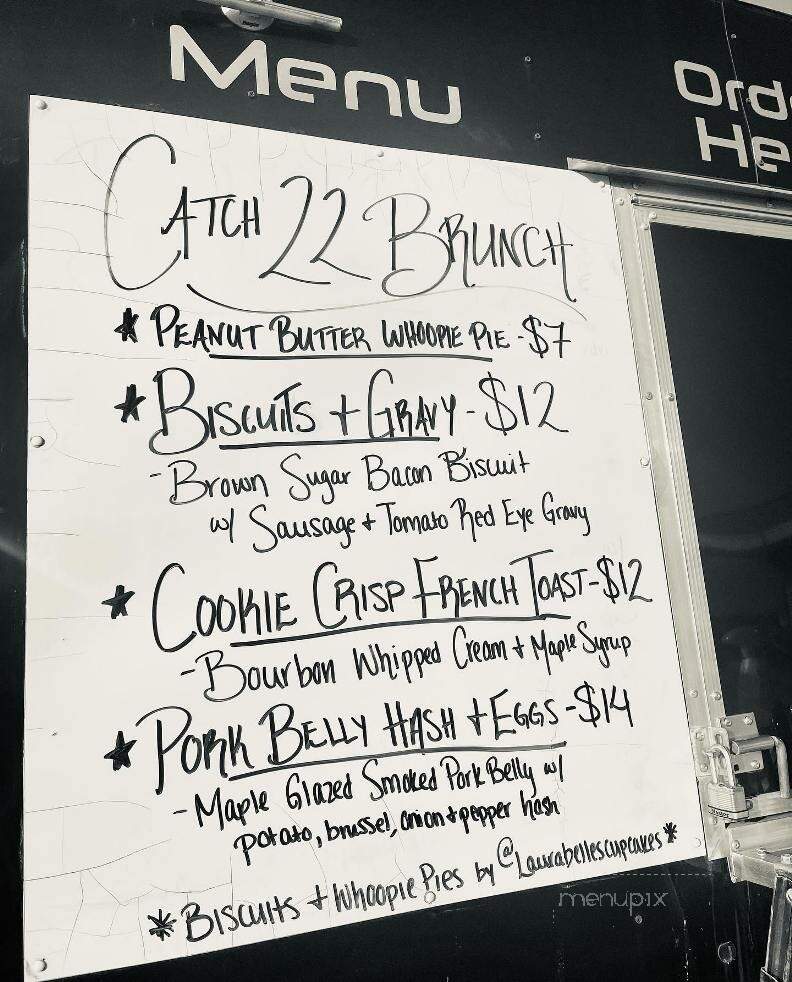 Menu
Orde
He
CATCH 22 BRUNCH
★ PEANUT BUTTER WHOOPIE PIE - $7
★ BISCUITS + GRAVY - $12
- Brown Sugar Bacon Biscuit
w/ Sausage + Tomato Red Eye Gravy
★ COOKIE CRISP FRENCH TOAST - $12
- Bourbon Whipped Cream + Maple Syrup
★ PORK BELLY HASH + EGGS - $14
- Maple Glazed Smoked Pork Belly w/
potato, brussel, onion + pepper hash
* BISCUITS + Whoopie Pies by @Laurabellescupcakes *
menupix